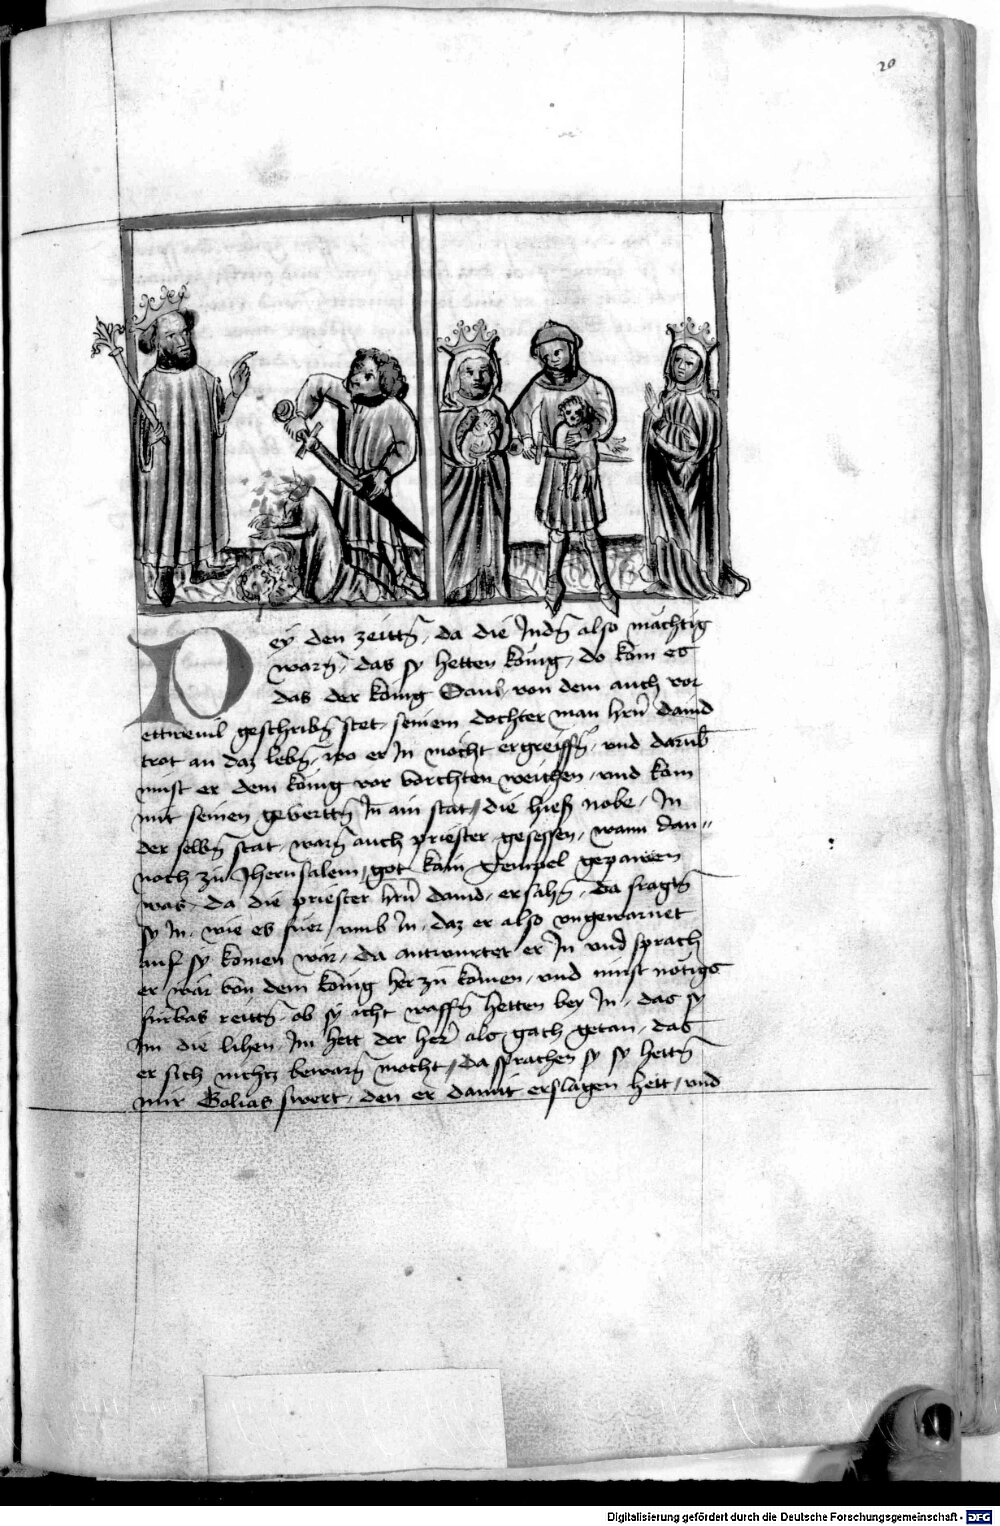 20
Pey den zeittn̄ / da die Judn̄ also mächtig
warn̄ / das sy hetten könig / do kam es
das der könig Saul / von dem auch vor
ettweuil geschribn̄ stet / seinem dochter man hrn̄ dauid
trot an daz lebn̄ / wo er In mocht ergreiffn̄ / vnd darūb
must er dem könig vor vorchten weichen / vnd kam
mit seinen geuerttn̄ In ain stat / die hiess nobe / In
der selbn̄ stat / warn̄ auch priester gesessen / wann dan〃
noch zu Jherusalem / got kain Tempel gepawen
was / da die priester hrn̄ dauid / ersahn̄ / da fragtn̄
sy In / wie es fuer / vmb In / daz er also vngewarnet
auf sy komen wär / da antwurtet er In vnd sprach
er wär von dem könig her zu komen / vnd must nötigs
fürbas reittn̄ / ob sy icht waffn̄ hetten bey In / das sy
Im die lihen / Im hett der her als gach getan / das
er sich nichtz bewarn̄ mocht / da sprachen sy sy hettn̄
nur Golias swert / den er damit erslagen hett / vnd
Digitalisierung gefördert durch die Deutsche Forschungsgemeinschaft - DFG